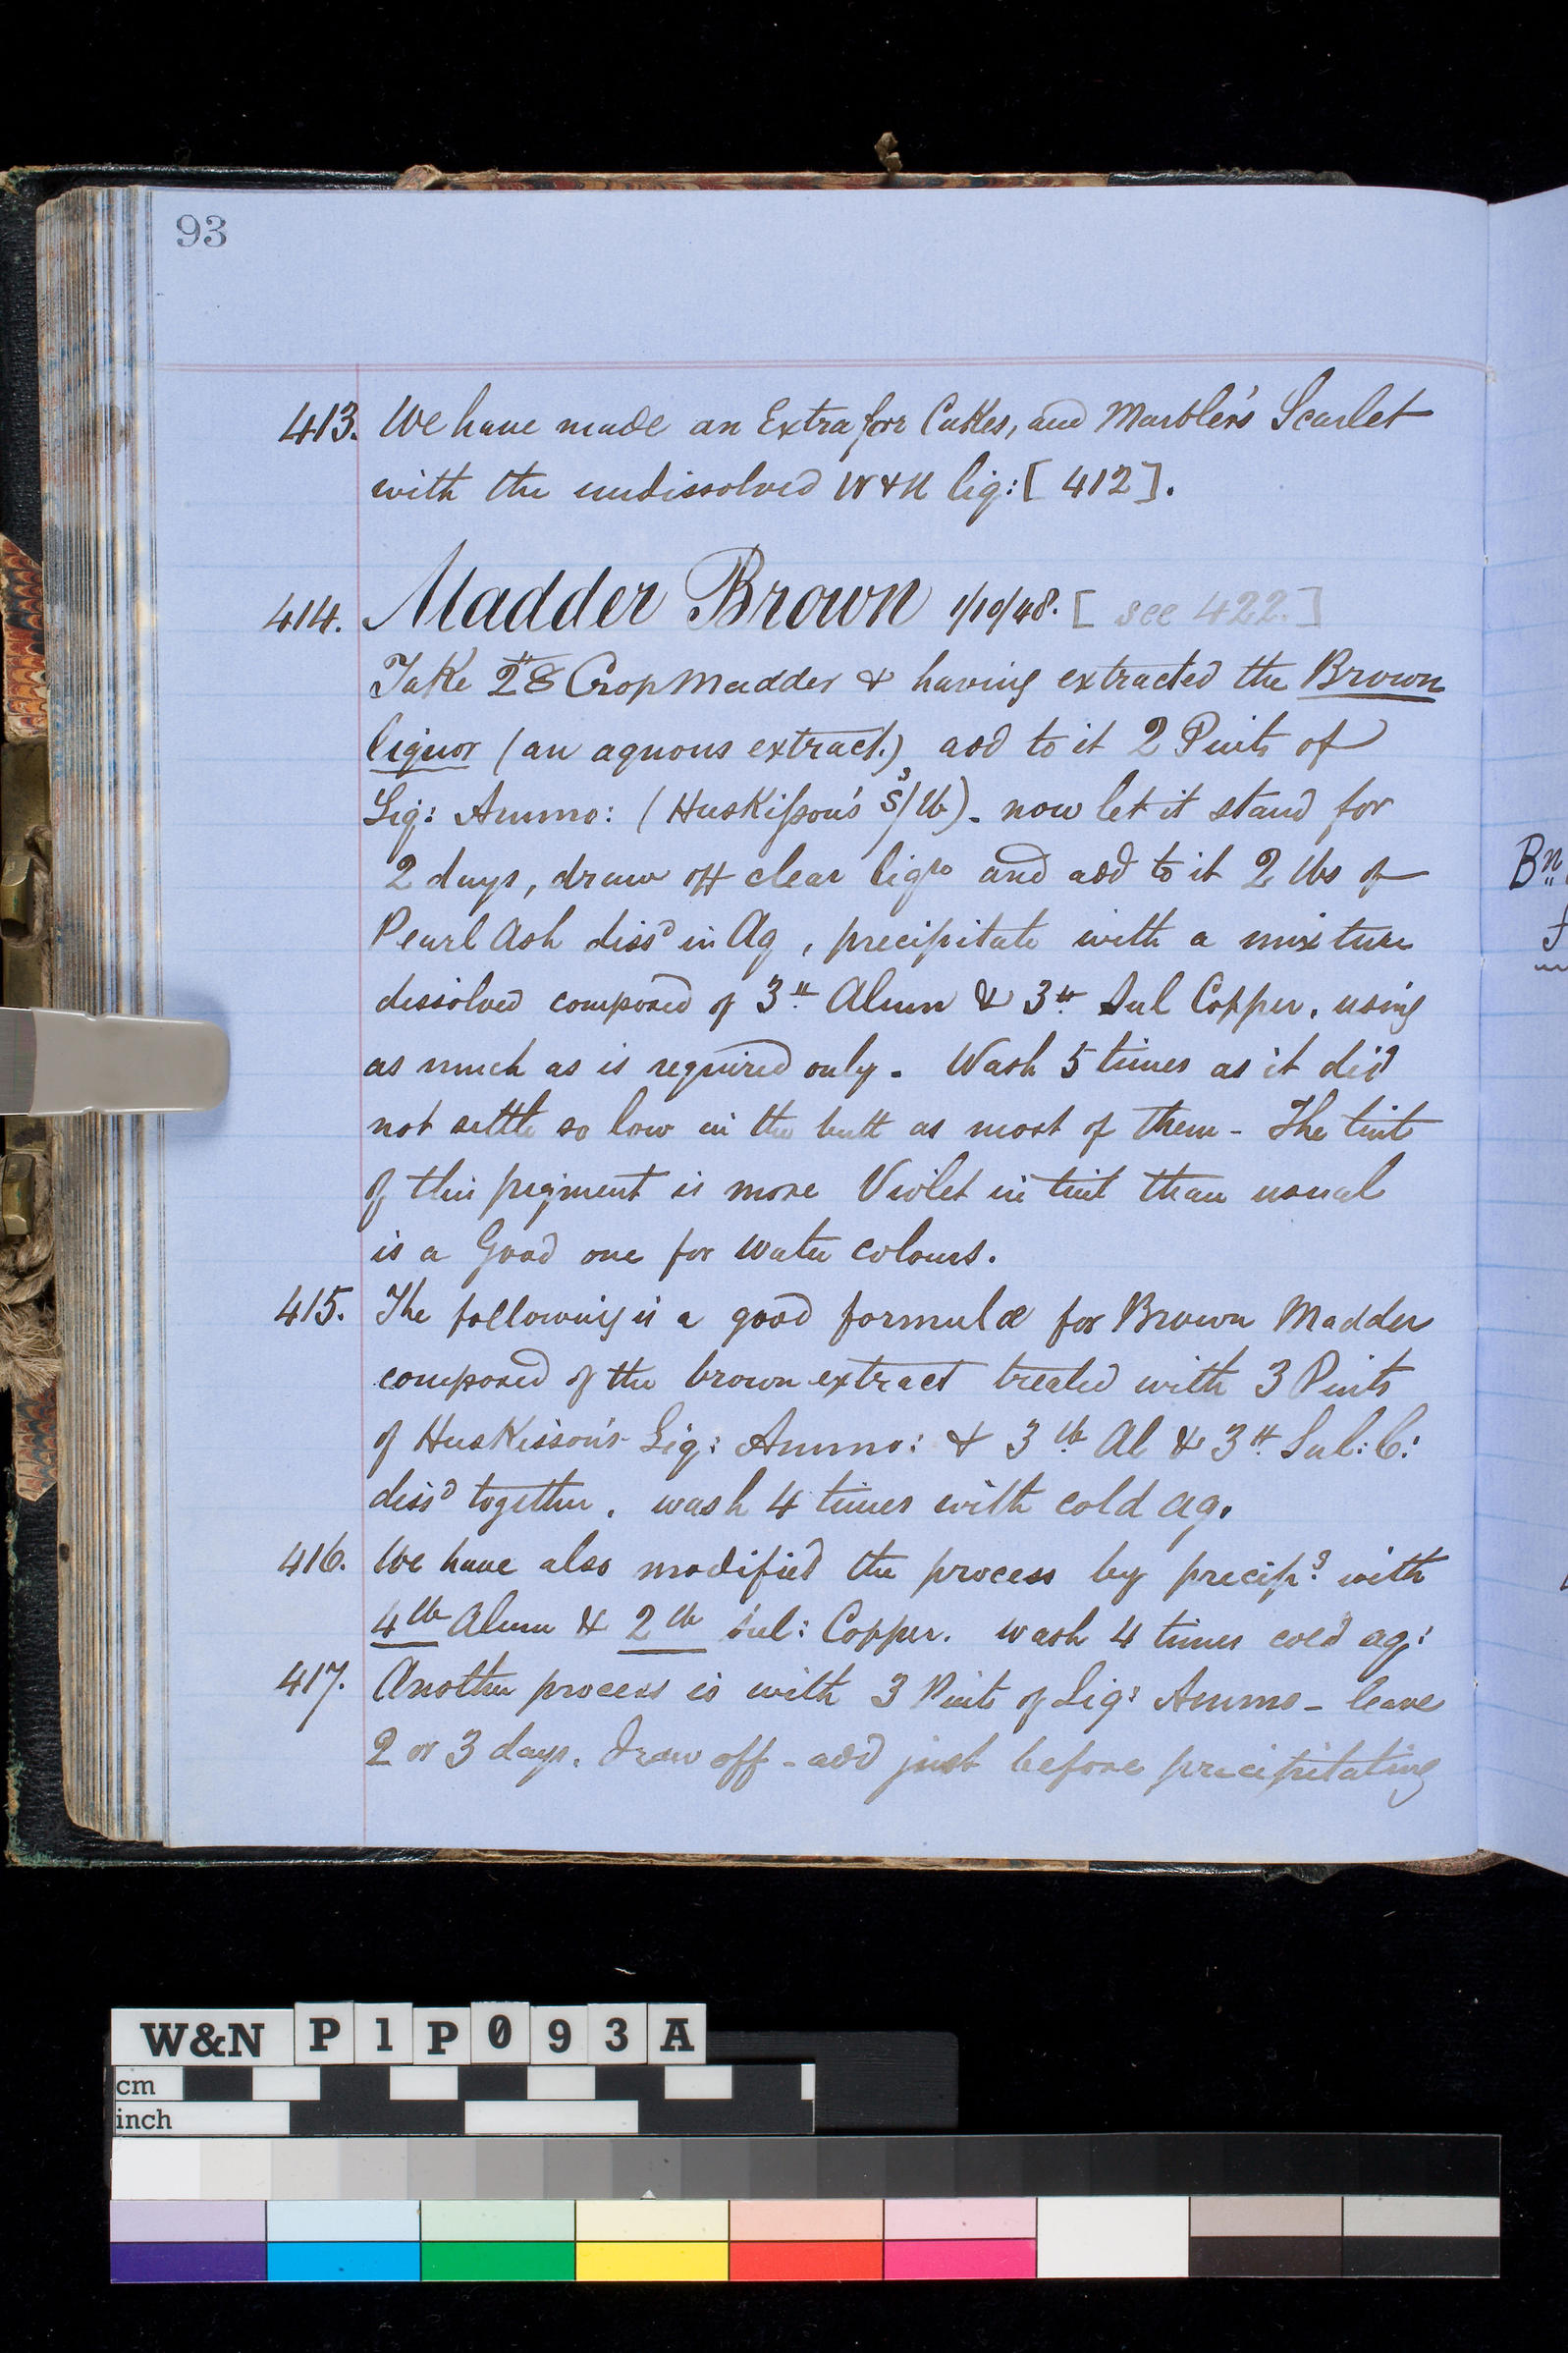 93
413. We have made an Extra for Cakes, and Marbler's Scarlet
with the undissolved liq: [ 412 ].
414. Madder Brown 1/10/48. [ see 422. ]
Take 28 Crop Madder & having extracted the Brown
liquor (an aquous extract.) add to it 2 Pints of
Liq: Ammo: (Huskisson's /lb) - now let it stand for
2 days, draw off clear liqr and add to it 2 lbs of
Pearl Ash dissd in Aq, precipitate with a mixture
dissolved composed of 3 lb Alum & 3 lb Sul Copper, using
as much as is required only. Wash 5 times as it did
not settle so low in the butt as most of them - The tint
of this pigment is more Violet in tint than usual
is a Good one for Water colours.
415. The following is a good formulæ for Brown Madder
composed of the brown extract treated with 3 Pints
of Huskisson's Liq: Ammo: & 3 lb Al & 3 lb Sul: C:
dissd together. wash 4 times with cold aq.
416. We have also modified the process by precipg with
4 lb Alum & 2 lb Sul: Copper. wash 4 times cold aq:
417. Another process is with 3 Pints of Liq: Ammo - leave
2 or 3 days. Draw off - add just before precipitating
Bn
W&N P1P093A
cm
inch